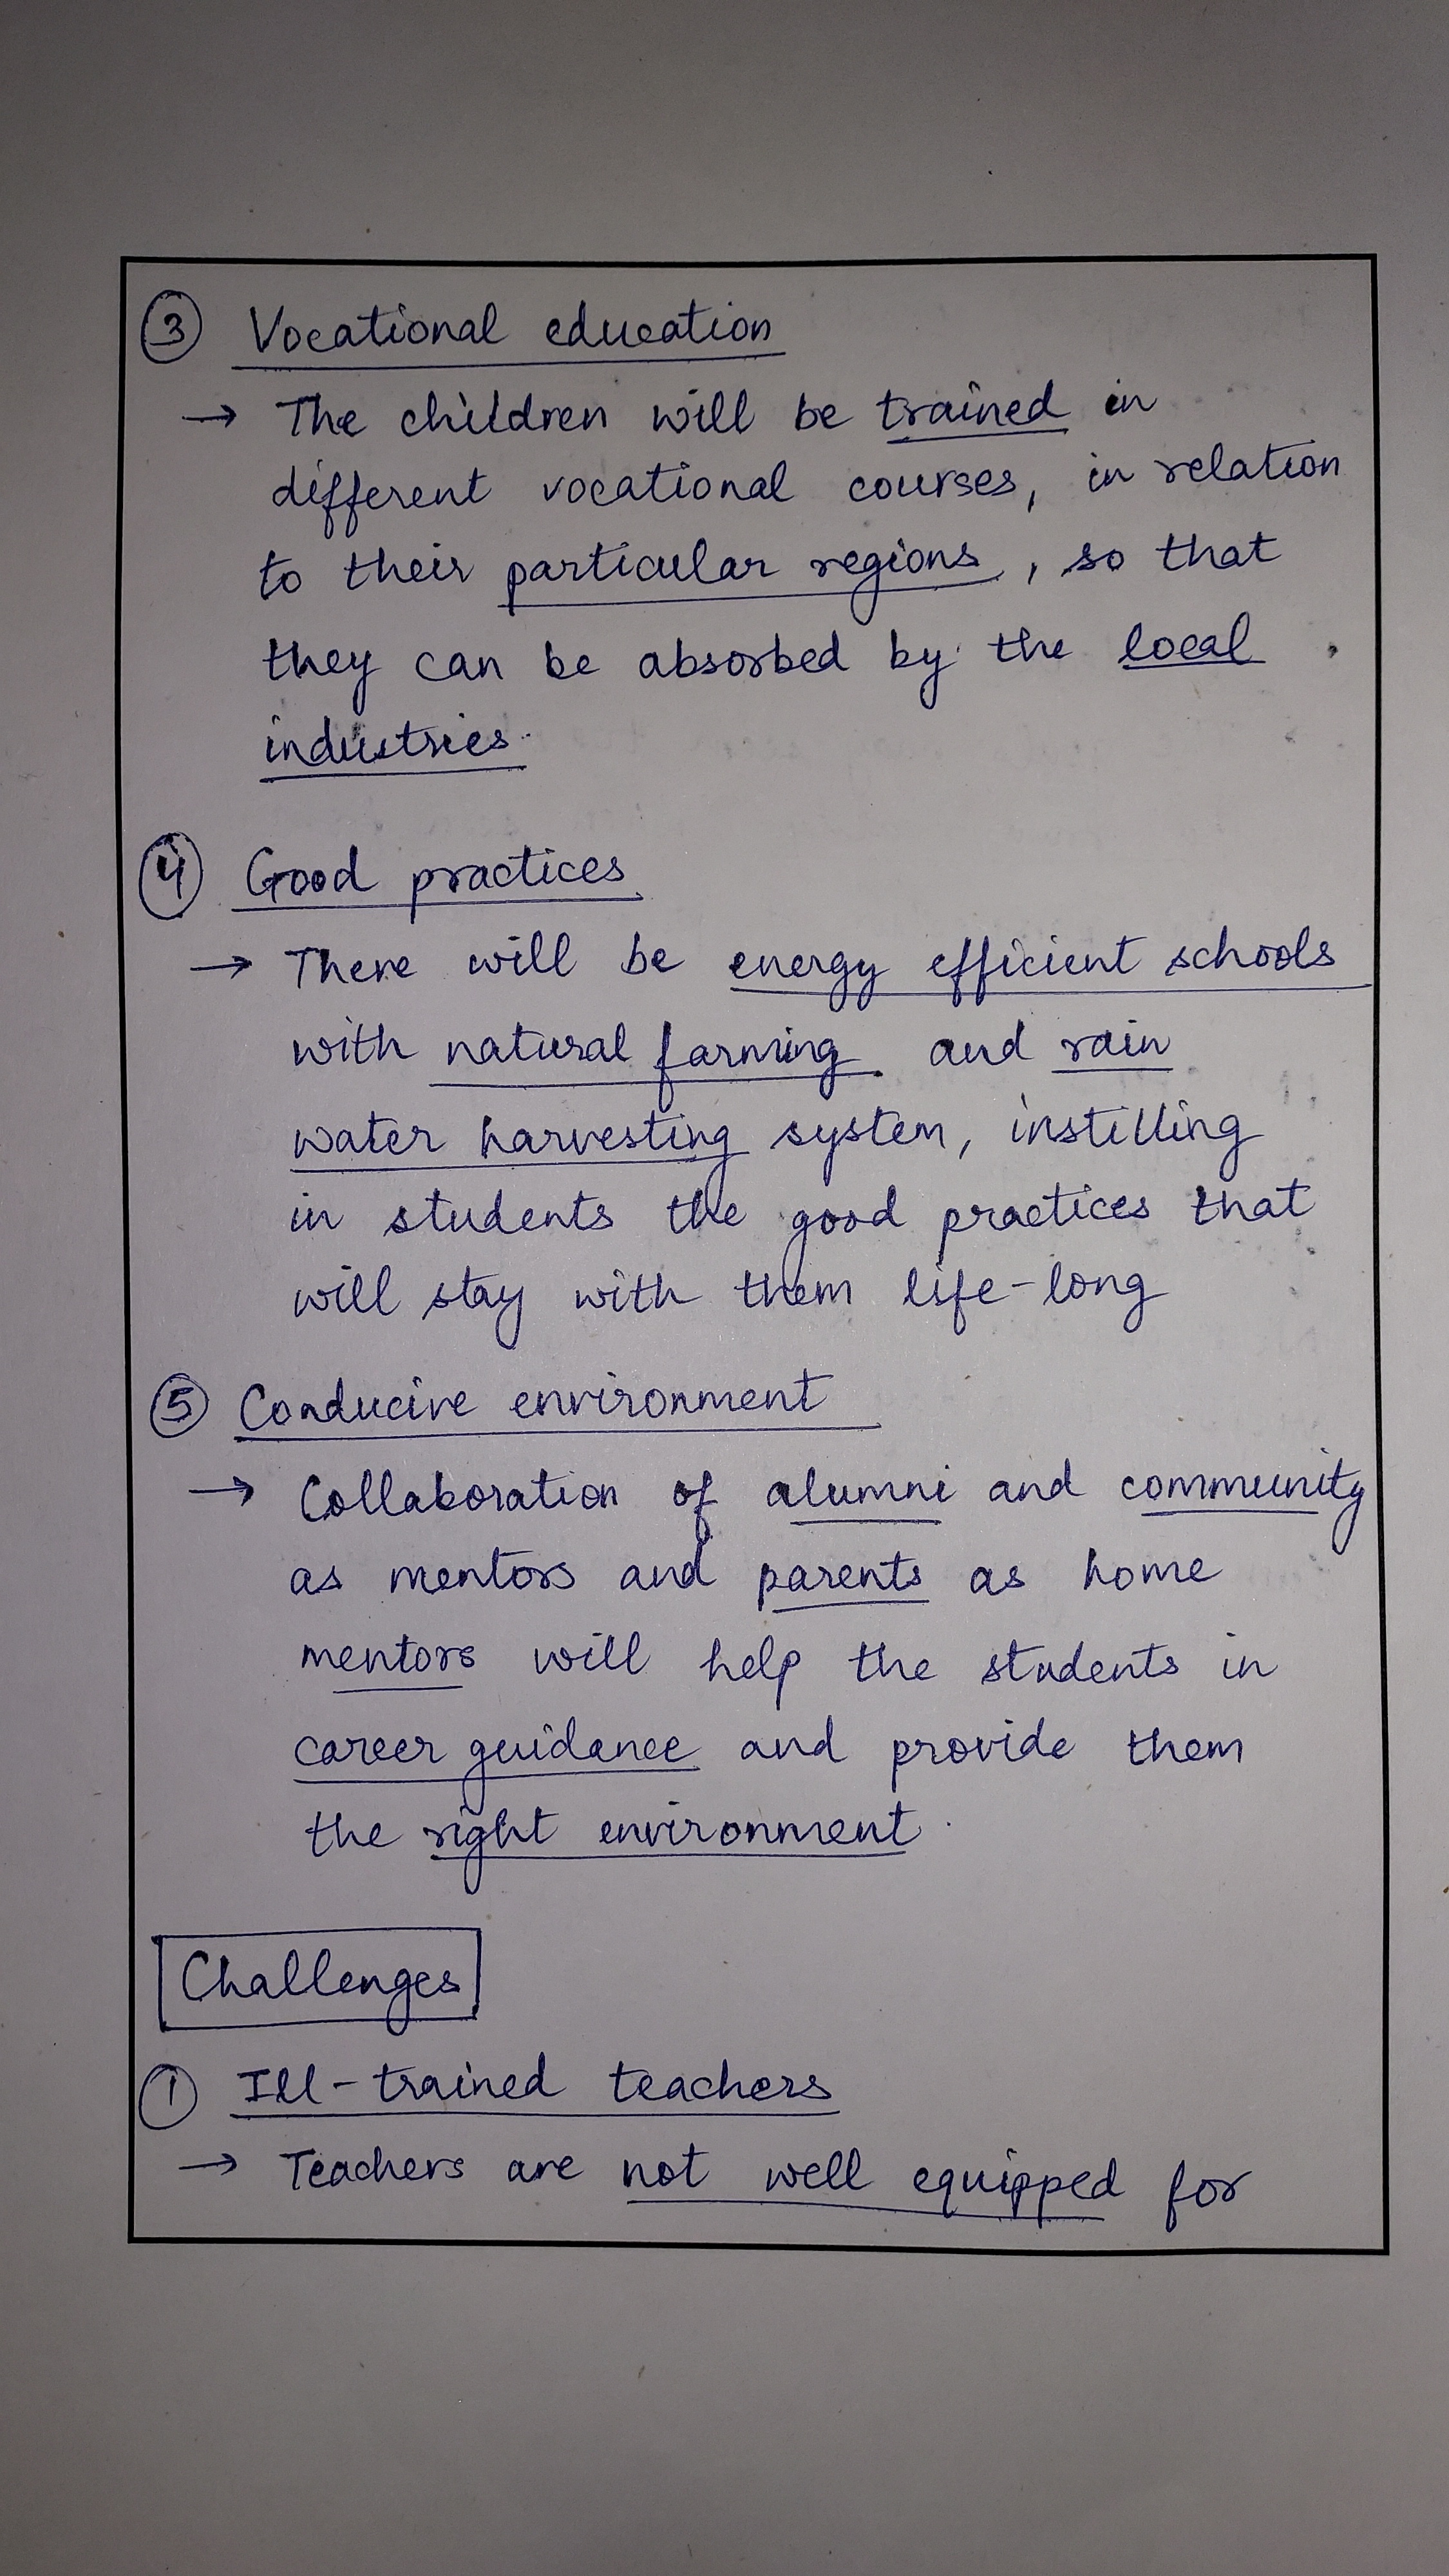 3 Vocational education
→ The children will be trained in
different vocational courses, in relation
to their particular regions, so that
they can be absorbed by the local
industries.
4 Good practices
→ There will be energy efficient schools
with natural farming and rain
water harvesting system, instilling
in students the good practices that
will stay with them life-long
5 Conducive environment
→ Collaboration of alumni and community
as mentors and parents as home
mentors will help the students in
career guidance and provide them
the right environment.
Challenges
1 Ill-trained teachers
→ Teachers are not well equipped for